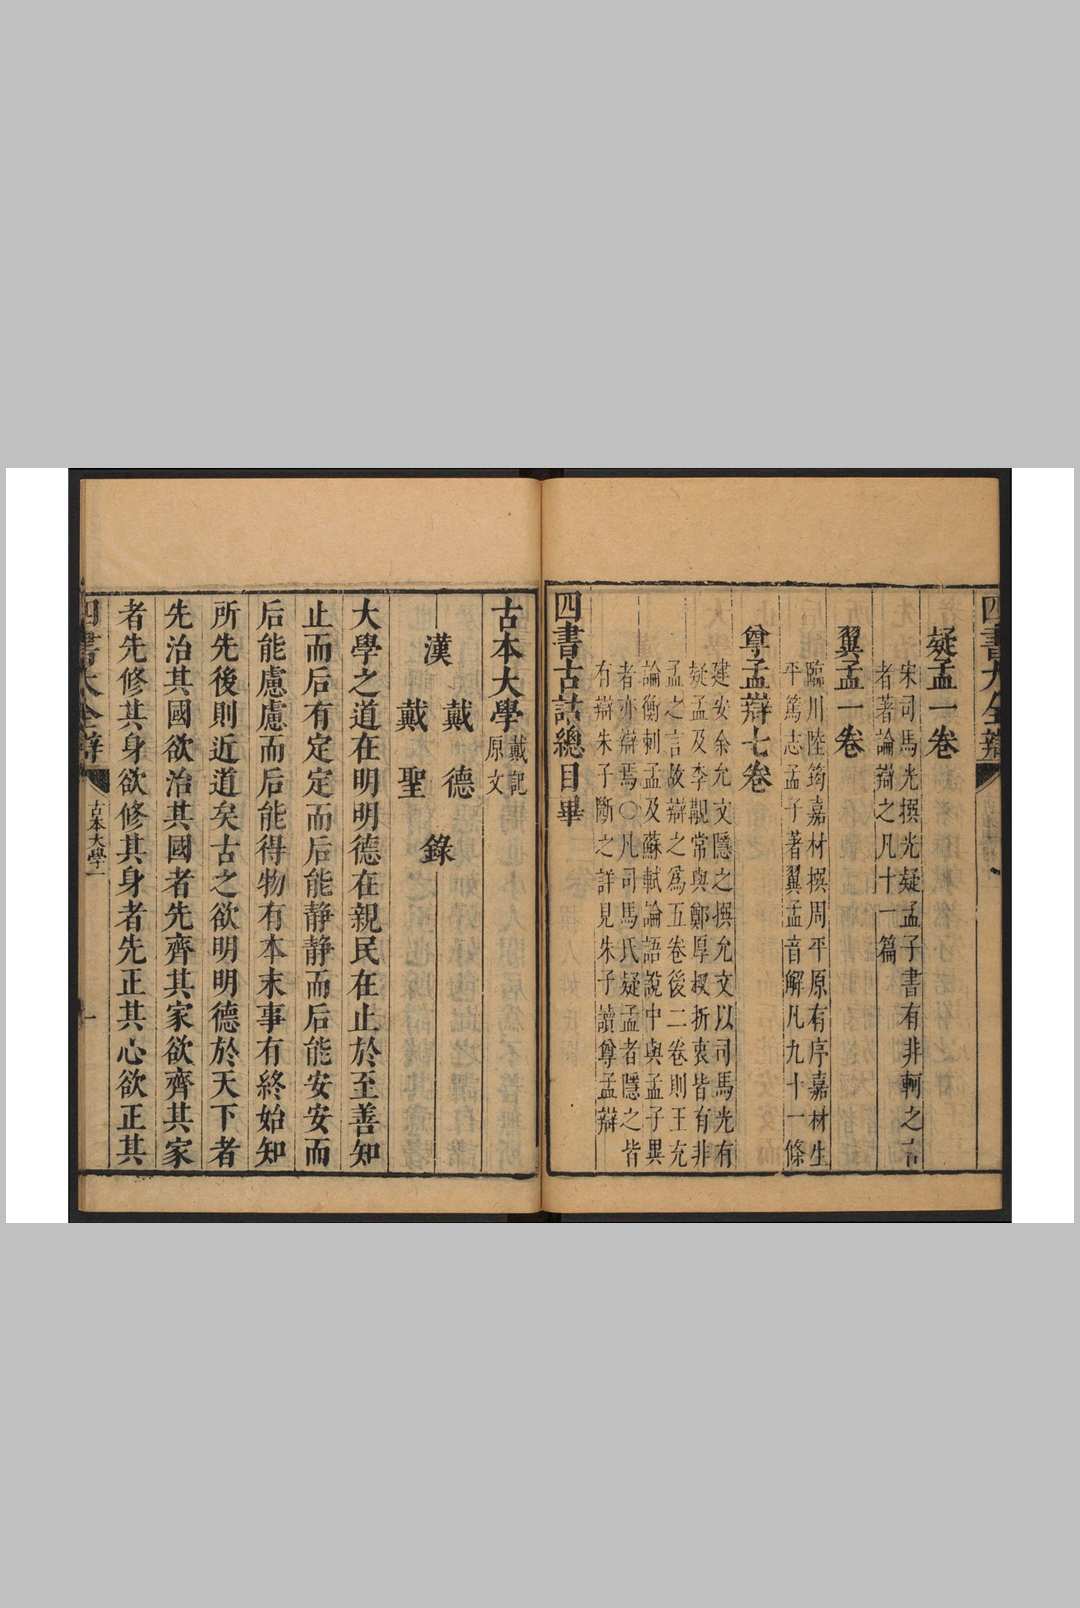 四書大全辯
疑孟一卷
宋司馬光撰光疑孟子書有非軻之言
者著論辯之凡十一篇
翼孟一卷
臨川陸筠嘉材撰周平原有序嘉材生
平篤志孟子著翼孟音解凡九十一條
尊孟辯七卷
建安余允文隱之撰允文以司馬光有
疑孟及李覯常與鄭厚叔折衷皆有非
孟之言故辯之為五卷後二卷則王充
論衡刺孟及蘇軾論語說中與孟子異
者亦辯焉〇凡司馬氏疑孟者隱之皆
有辯朱子斷之詳見朱子讀尊孟辯
四書古詁總目畢
古本大學戴記原文
漢 戴德
戴聖 錄
大學之道在明明德在親民在止於至善知
止而后有定定而后能静静而后能安安而
后能慮慮而后能得物有本末事有終始知
所先後則近道矣古之欲明明德於天下者
先治其國欲治其國者先齊其家欲齊其家
者先修其身欲修其身者先正其心欲正其
四書大全辯 古本大學一 一